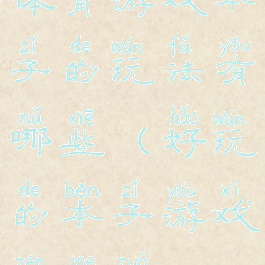 游 戏
zǐ de wán fǎ yǒu
子 的 玩 法 有
nǎ xiē hǎo wán
哪 些 （ 好 玩
de běn zǐ yóu xì
的 本 子 游 戏